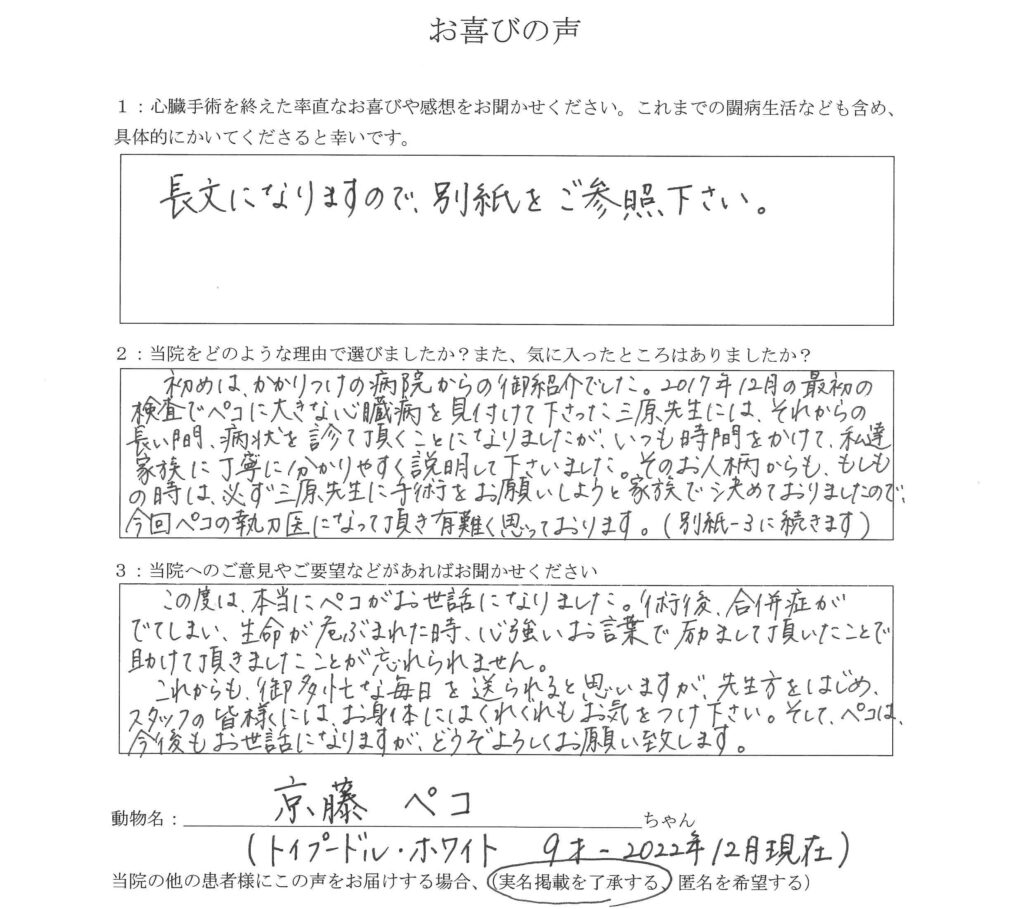 お喜びの声
1：心臓手術を終えた率直なお喜びや感想をお聞かせください。これまでの闘病生活なども含め、
具体的にかいてくださると幸いです。
長文になりますので、別紙をご参照下さい。
2：当院をどのような理由で選びましたか？また、気に入ったところはありましたか？
初めは、かかりつけの病院からの御紹介でした。2017年12月の最初の
検査でペコに大きな心臓病を見付けて下さった三原先生には、それからの
長い間、病状を診て頂くことになりましたが、いつも時間をかけて、私達
家族に丁寧に分かりやすく説明して下さいました。そのお人柄からも、もしも
の時は、必ず三原先生に手術をお願いしようと家族で決めておりましたので、
今回ペコの執刀医になって頂き有難く思っております。（別紙-3に続きます）
3：当院へのご意見やご要望などがあればお聞かせください
この度は、本当にペコがお世話になりました。術後、合併症が
でてしまい、生命が危ぶまれた時、心強いお言葉で励まして頂いたことで
助けて頂きましたことが忘れられません。
これからも、御多忙な毎日を送られると思いますが、先生方をはじめ、
スタッフの皆様には、お身体にはくれぐれもお気をつけ下さい。そして、ペコは、
今後もお世話になりますが、どうぞよろしくお願い致します。
動物名：京藤 ペコ ちゃん
（トイプードル・ホワイト 9才-2022年12月現在）
当院の他の患者様にこの声をお届けする場合、（実名掲載を了承する、匿名を希望する）